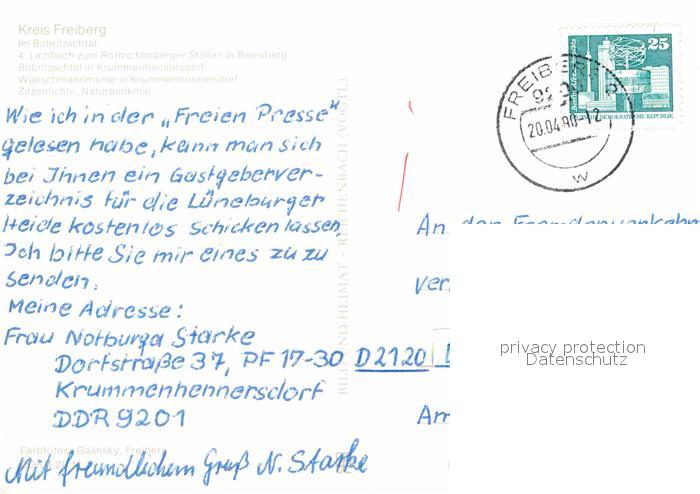 Kreis Freiberg
Im Bobritzschtal
4. Lichtloch zum Rothschönberger Stollen in Reinsberg
Bobritzschtal in Krummenhennersdorf
Wünschmannmühle in Krummenhennersdorf
Zitzenfichte, Naturdenkmal
Wie ich in der „Freien Presse"
gelesen habe, kann man sich
bei Ihnen ein Gastgeberver-
zeichnis für die Lüneburger
Heide kostenlos schicken lassen,
Ich bitte Sie mir eines zu zu
senden.
Meine Adresse:
Frau Notburga Starke
Dorfstraße 37, PF 17-30
Krummenhennersdorf
DDR 9201
Farbfotos: Galinsky, Freiberg
Mit freundlichem Gruß N. Starke
BILD UND HEIMAT · REICHENBACH (VOGTL)
25
DEMOKRATISCHE REPUBLIK
FREIBERG
92
20.04.90-12
w
An den Fremdenverkehrs
ver
D2120
Am
privacy protection
Datenschutz